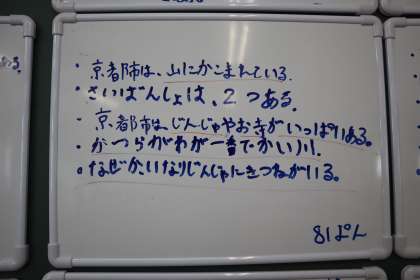 ・京都市は、山にかこまれている。
・さいばんしょは、2つある。
・京都市はじんじゃやお寺がいっぱいある。
・かつらがわが一番でかい川。
・なぜかいなりじんじゃにきつねがいる。
8はん